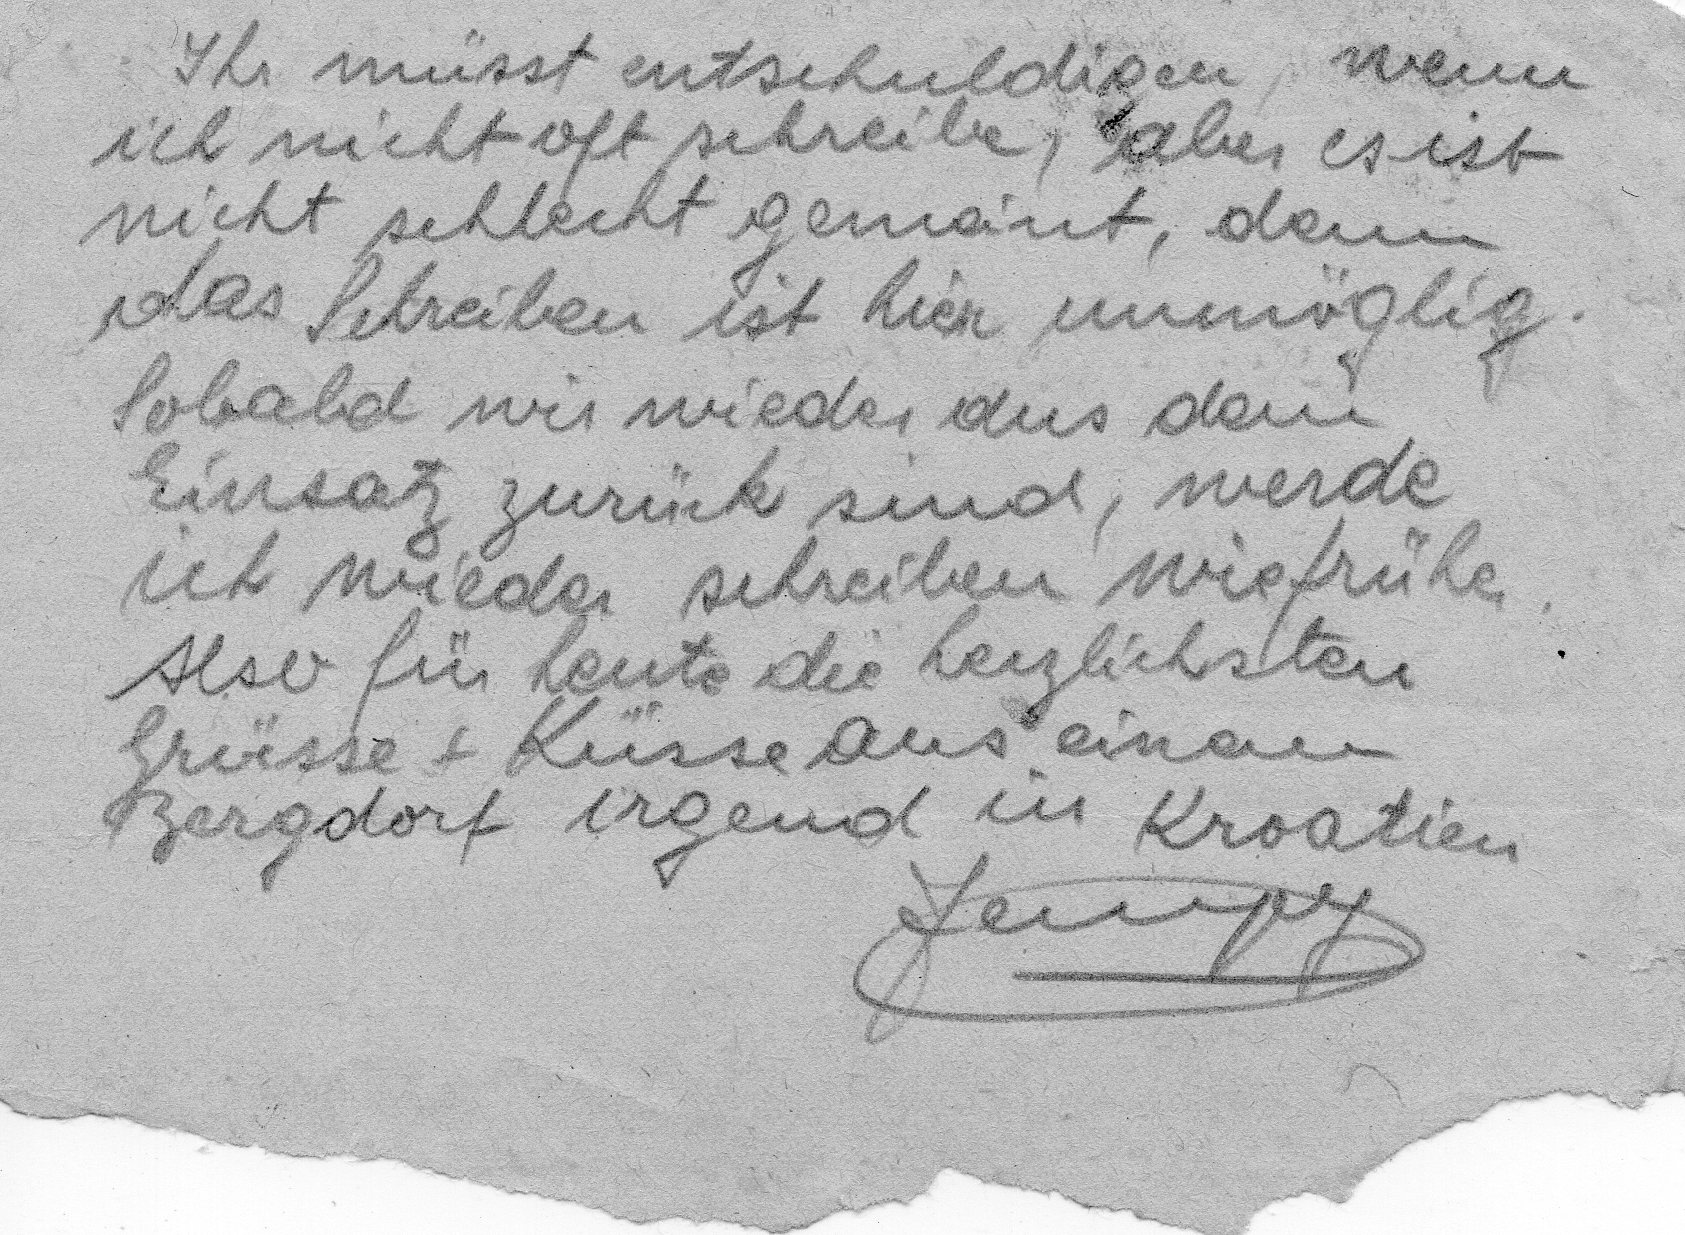 Ihr müsst entschuldigen, wenn
ich nicht oft schreibe, aber es ist
nicht schlecht gemeint, denn
das Schreiben ist hier unmöglig.
Sobald wir wieder aus dem
Einsatz zurück sind, werde
ich wieder schreiben wie früher.
Also für heute die herzlichsten
Grüsse + Küsse aus einem
Bergdorf irgend in Kroatien